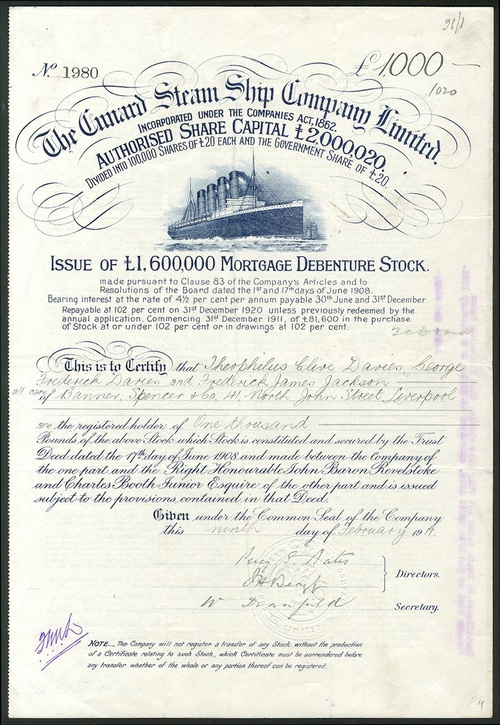 No. 1980
£1,000 —
1020
The Cunard Steam Ship Company Limited.
INCORPORATED UNDER THE COMPANIES ACT, 1862.
AUTHORISED SHARE CAPITAL £2,000,020.
DIVIDED INTO 100,000 SHARES OF £20 EACH AND THE GOVERNMENT SHARE OF £20.
ISSUE OF £1,600,000 MORTGAGE DEBENTURE STOCK.
made pursuant to Clause 83 of the Company's Articles and to
Resolutions of the Board dated the 1st and 17th days of June 1908.
Bearing interest at the rate of 4½ per cent per annum payable 30th June and 31st December
Repayable at 102 per cent on 31st December 1920 unless previously redeemed by the
annual application. Commencing 31st December 1911, of £81,600 in the purchase
of Stock at or under 102 per cent or in drawings at 102 per cent.
This is to Certify that Theophilus Clive Davies, George
Frederick Davies and Frederick James Jackson
all care of Banner, Spencer & Co. 41 North John Street, Liverpool
are the registered holder of One thousand
Pounds of the above Stock which Stock is constituted and secured by the Trust
Deed dated the 17th day of June 1908 and made between the Company of
the one part and the Right Honourable John Baron Revelstoke
and Charles Booth Junior Esquire of the other part and is issued
subject to the provisions contained in that Deed.
Given under the Common Seal of the Company
this ninth day of February 19
Directors.
Secretary.
NOTE... The Company will not register a transfer of any Stock without the production
of a Certificate relating to such Stock, which Certificate must be surrendered before
any transfer whether of the whole or any portion thereof can be registered.